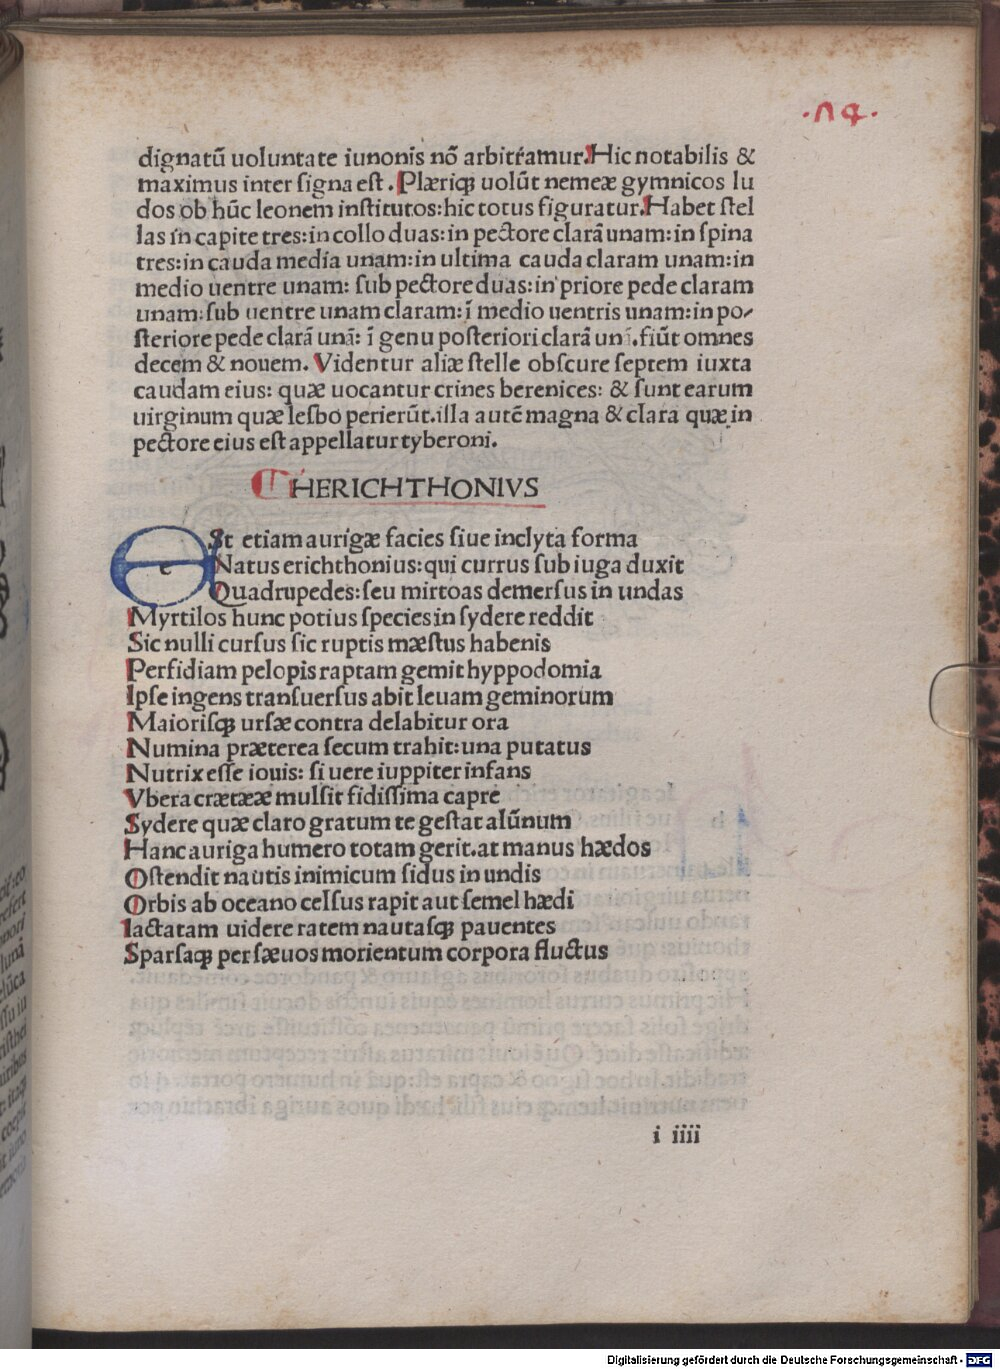 .94.
dignatū uoluntate iunonis nō arbitramur. Hic notabilis &
maximus inter signa est. Plæriqꝫ uolūt nemeæ gymnicos lu
dos ob hūc leonem institutos: hic totus figuratur. Habet stel
las in capite tres: in collo duas: in pectore clarā unam: in spina
tres: in cauda media unam: in ultima cauda claram unam: in
medio uentre unam: sub pectore duas: in priore pede claram
unam: sub uentre unam claram: ī medio uentris unam: in po⸗
steriore pede clarā unā: ī genu posteriori clarā unā. fiūt omnes
decem & nouem. Videntur aliæ stelle obscure septem iuxta
caudam eius: quæ uocantur crines berenices: & sunt earum
uirginum quæ lesbo perierūt. illa autē magna & clara quæ in
pectore eius est appellatur tyberoni.
HERICHTHONIVS
Est etiam aurigæ facies siue inclyta forma
Natus erichthonius: qui currus sub iuga duxit
Quadrupedes: seu mirtoas demersus in undas
Myrtilos hunc potius species in sydere reddit
Sic nulli cursus sic ruptis mæstus habenis
Perfidiam pelopis raptam gemit hyppodomia
Ipse ingens transuersus abit leuam geminorum
Maiorisqꝫ ursæ contra delabitur ora
Numina præterea secum trahit: una putatus
Nutrix esse iouis: si uere iuppiter infans
Vbera crætææ mulsit fidissima capre
Sydere quæ claro gratum te gestat alūnum
Hanc auriga humero totam gerit. at manus hædos
Ostendit nautis inimicum sidus in undis
Orbis ab oceano celsus rapit aut semel hædi
Iactatam uidere ratem nautasqꝫ pauentes
Sparsaqꝫ per sæuos morientum corpora fluctus
i iiii
Digitalisierung gefördert durch die Deutsche Forschungsgemeinschaft - DFG